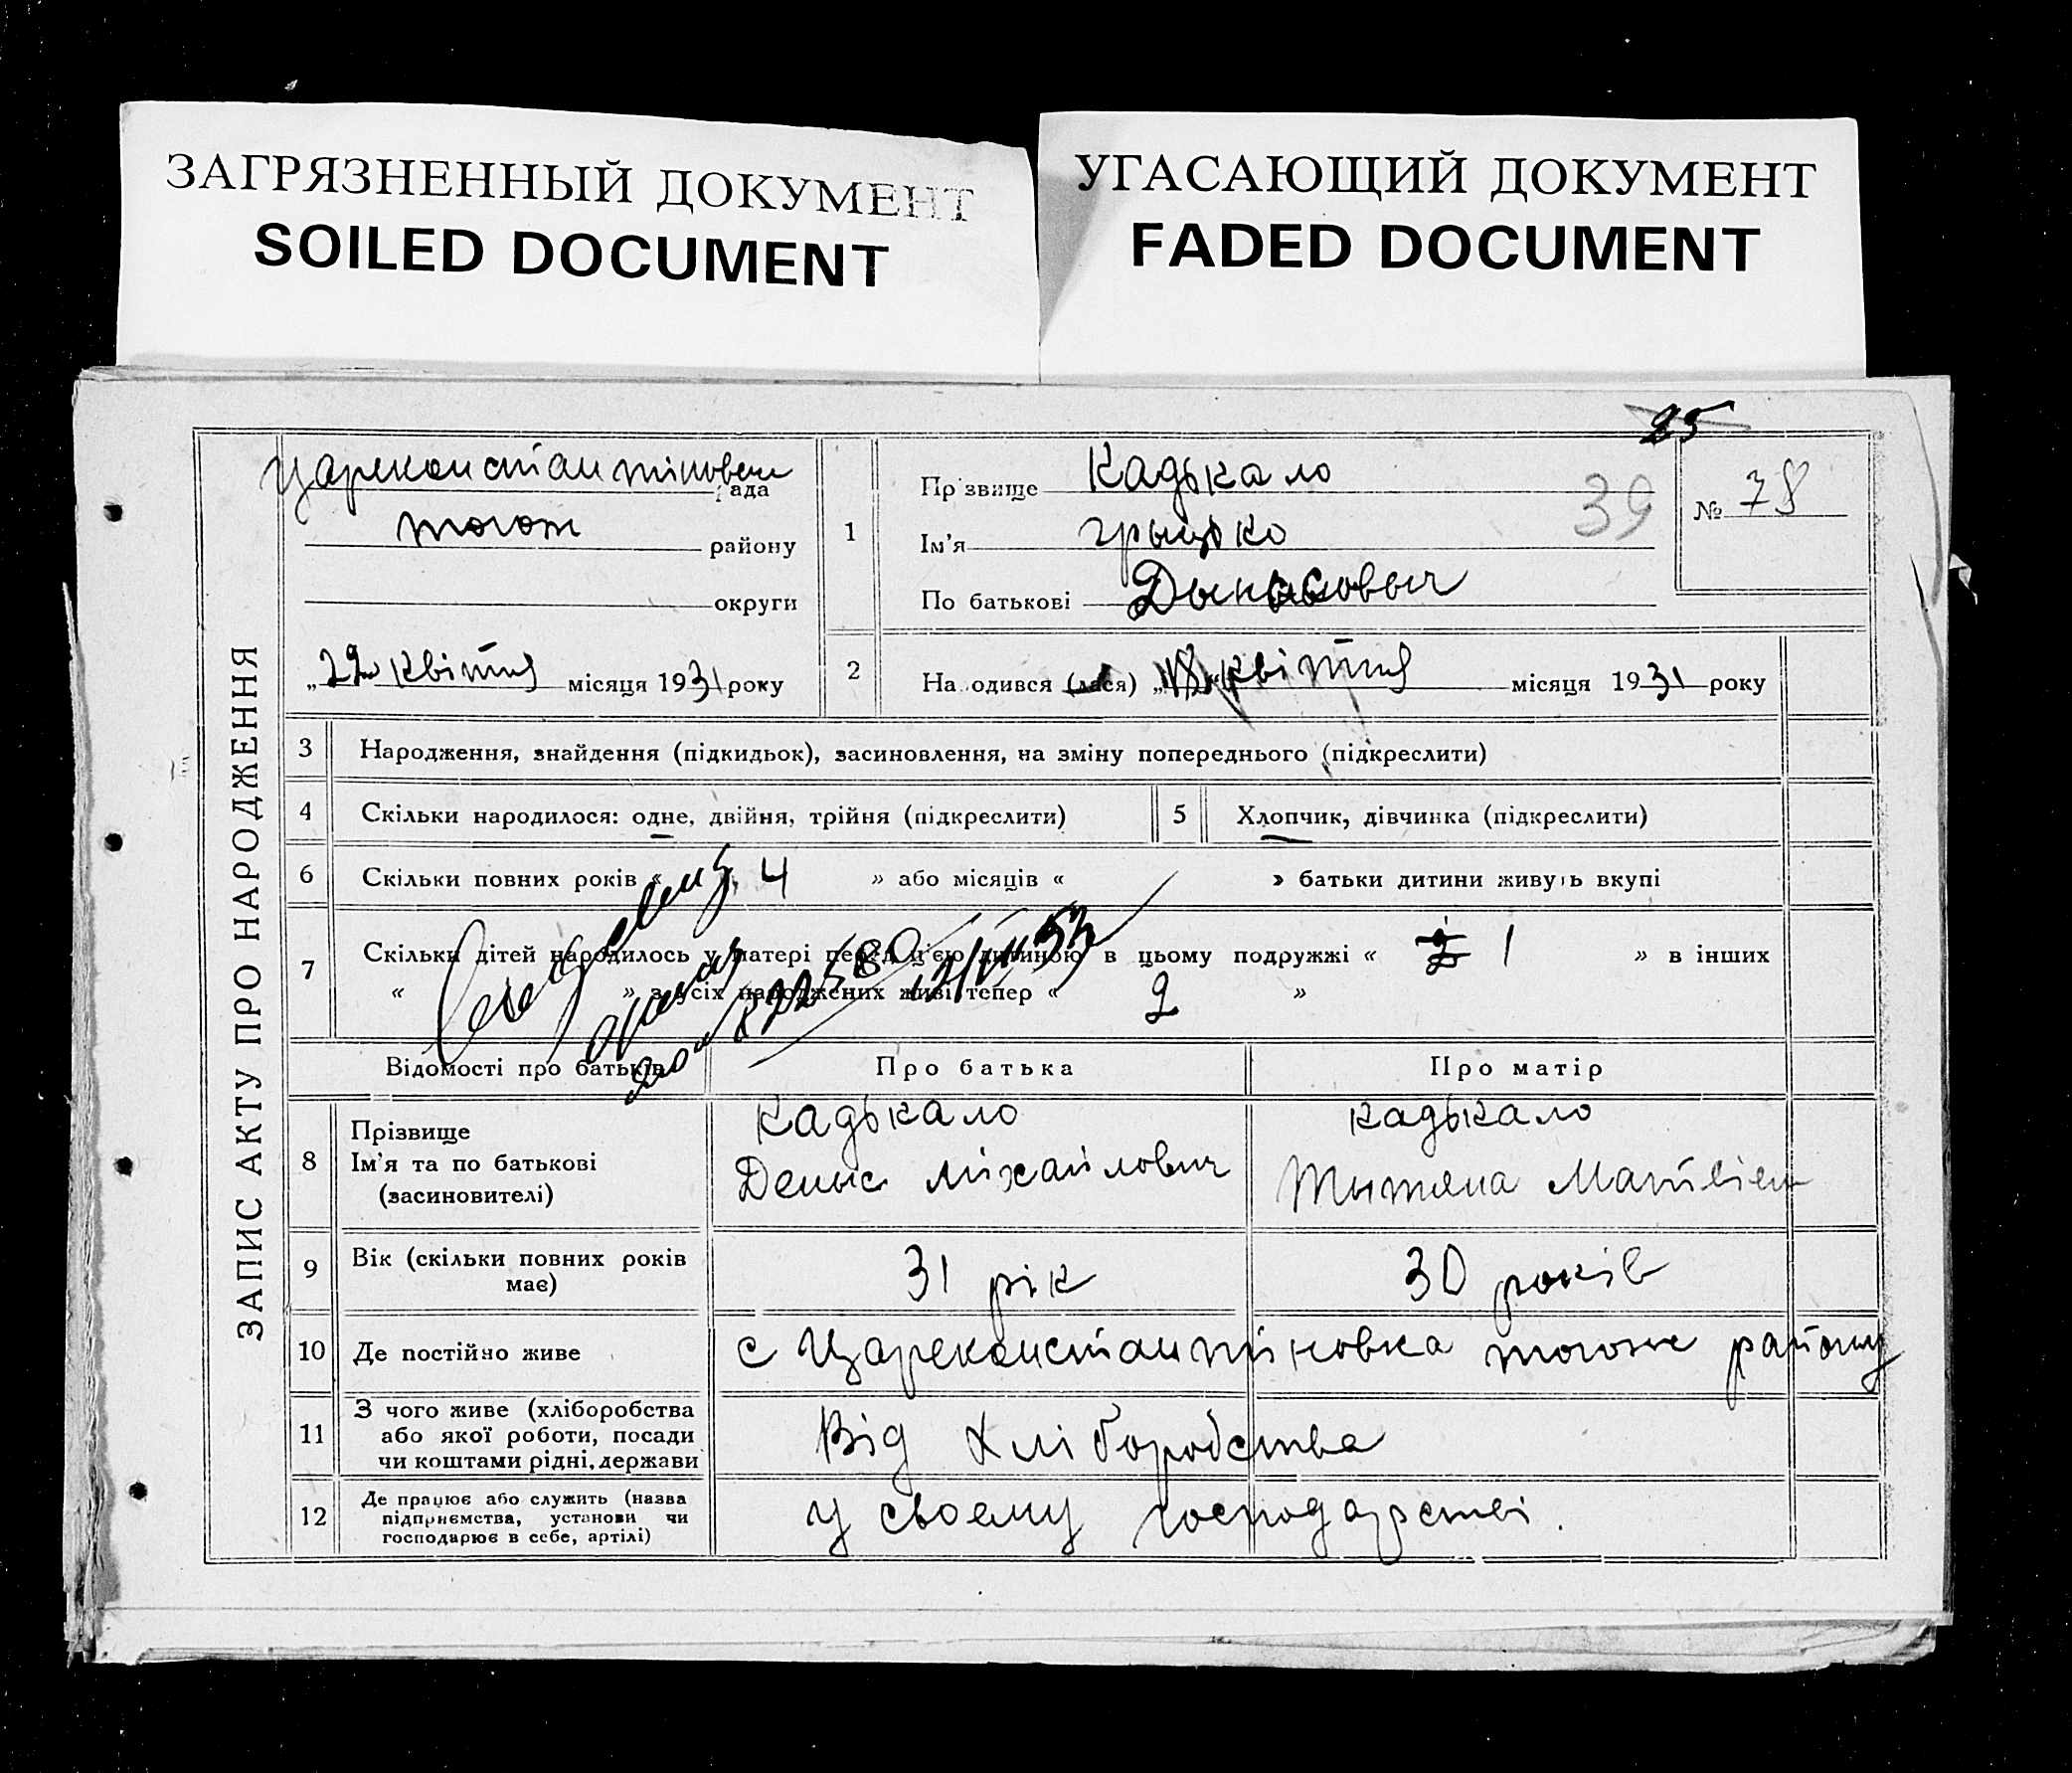 ЗАГРЯЗНЕННЫЙ ДОКУМЕНТ
SOILED DOCUMENT
УГАСАЮЩИЙ ДОКУМЕНТ
FADED DOCUMENT
25
39
№ 78
ЗАПИС АКТУ ПРО НАРОДЖЕННЯ
Цареконстантіновськ рада
тогож району
округи
„22“ квітня місяця 1931 року
1
Прізвище Кадькало
Ім'я Грыцько
По батькові Дынысовыч
2 На одився (лася) „18“ квітня місяця 1931 року
3 Народження, знайдення (підкидьок), засиновлення, на зміну попереднього (підкреслити)
4 Скільки народилося: одне, двійня, трійня (підкреслити)
5 Хлопчик, дівчинка (підкреслити)
6 Скільки повних років « 4 » або місяців « » батьки дитини живуть вкупі
7 Скільки дітей народилось у матері перед цією дитиною в цьому подружжі « 2 1 » в інших
« » з усіх народжених живі тепер « 2 »
12/VII 53
Відомості про батьків
Про батька
Про матір
8 Прізвище
Ім'я та по батькові
(засиновителі)
Кадькало
Деныс Міхайлович
Кадькало
Тытяна Матвіев
9 Вік (скільки повних років
має)
31 рік
30 років
10 Де постійно живе
с Цареконстантіновка тогож району
11 З чого живе (хліборобства
або якої роботи, посади
чи коштами рідні, держави
Від Хліборобства
12 Де працює або служить (назва
підприємства, установи чи
господарює в себе, артілі)
у своему господарстві.